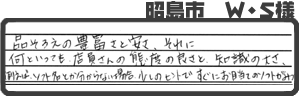 昭島市 W・S様
品そろえの豊富さと安さ、それに
何といっても店員さんの態度の良さと、知識の大さ、
ソフト名とか分からない場合、少しのヒントで すぐにお目当てのソフトが